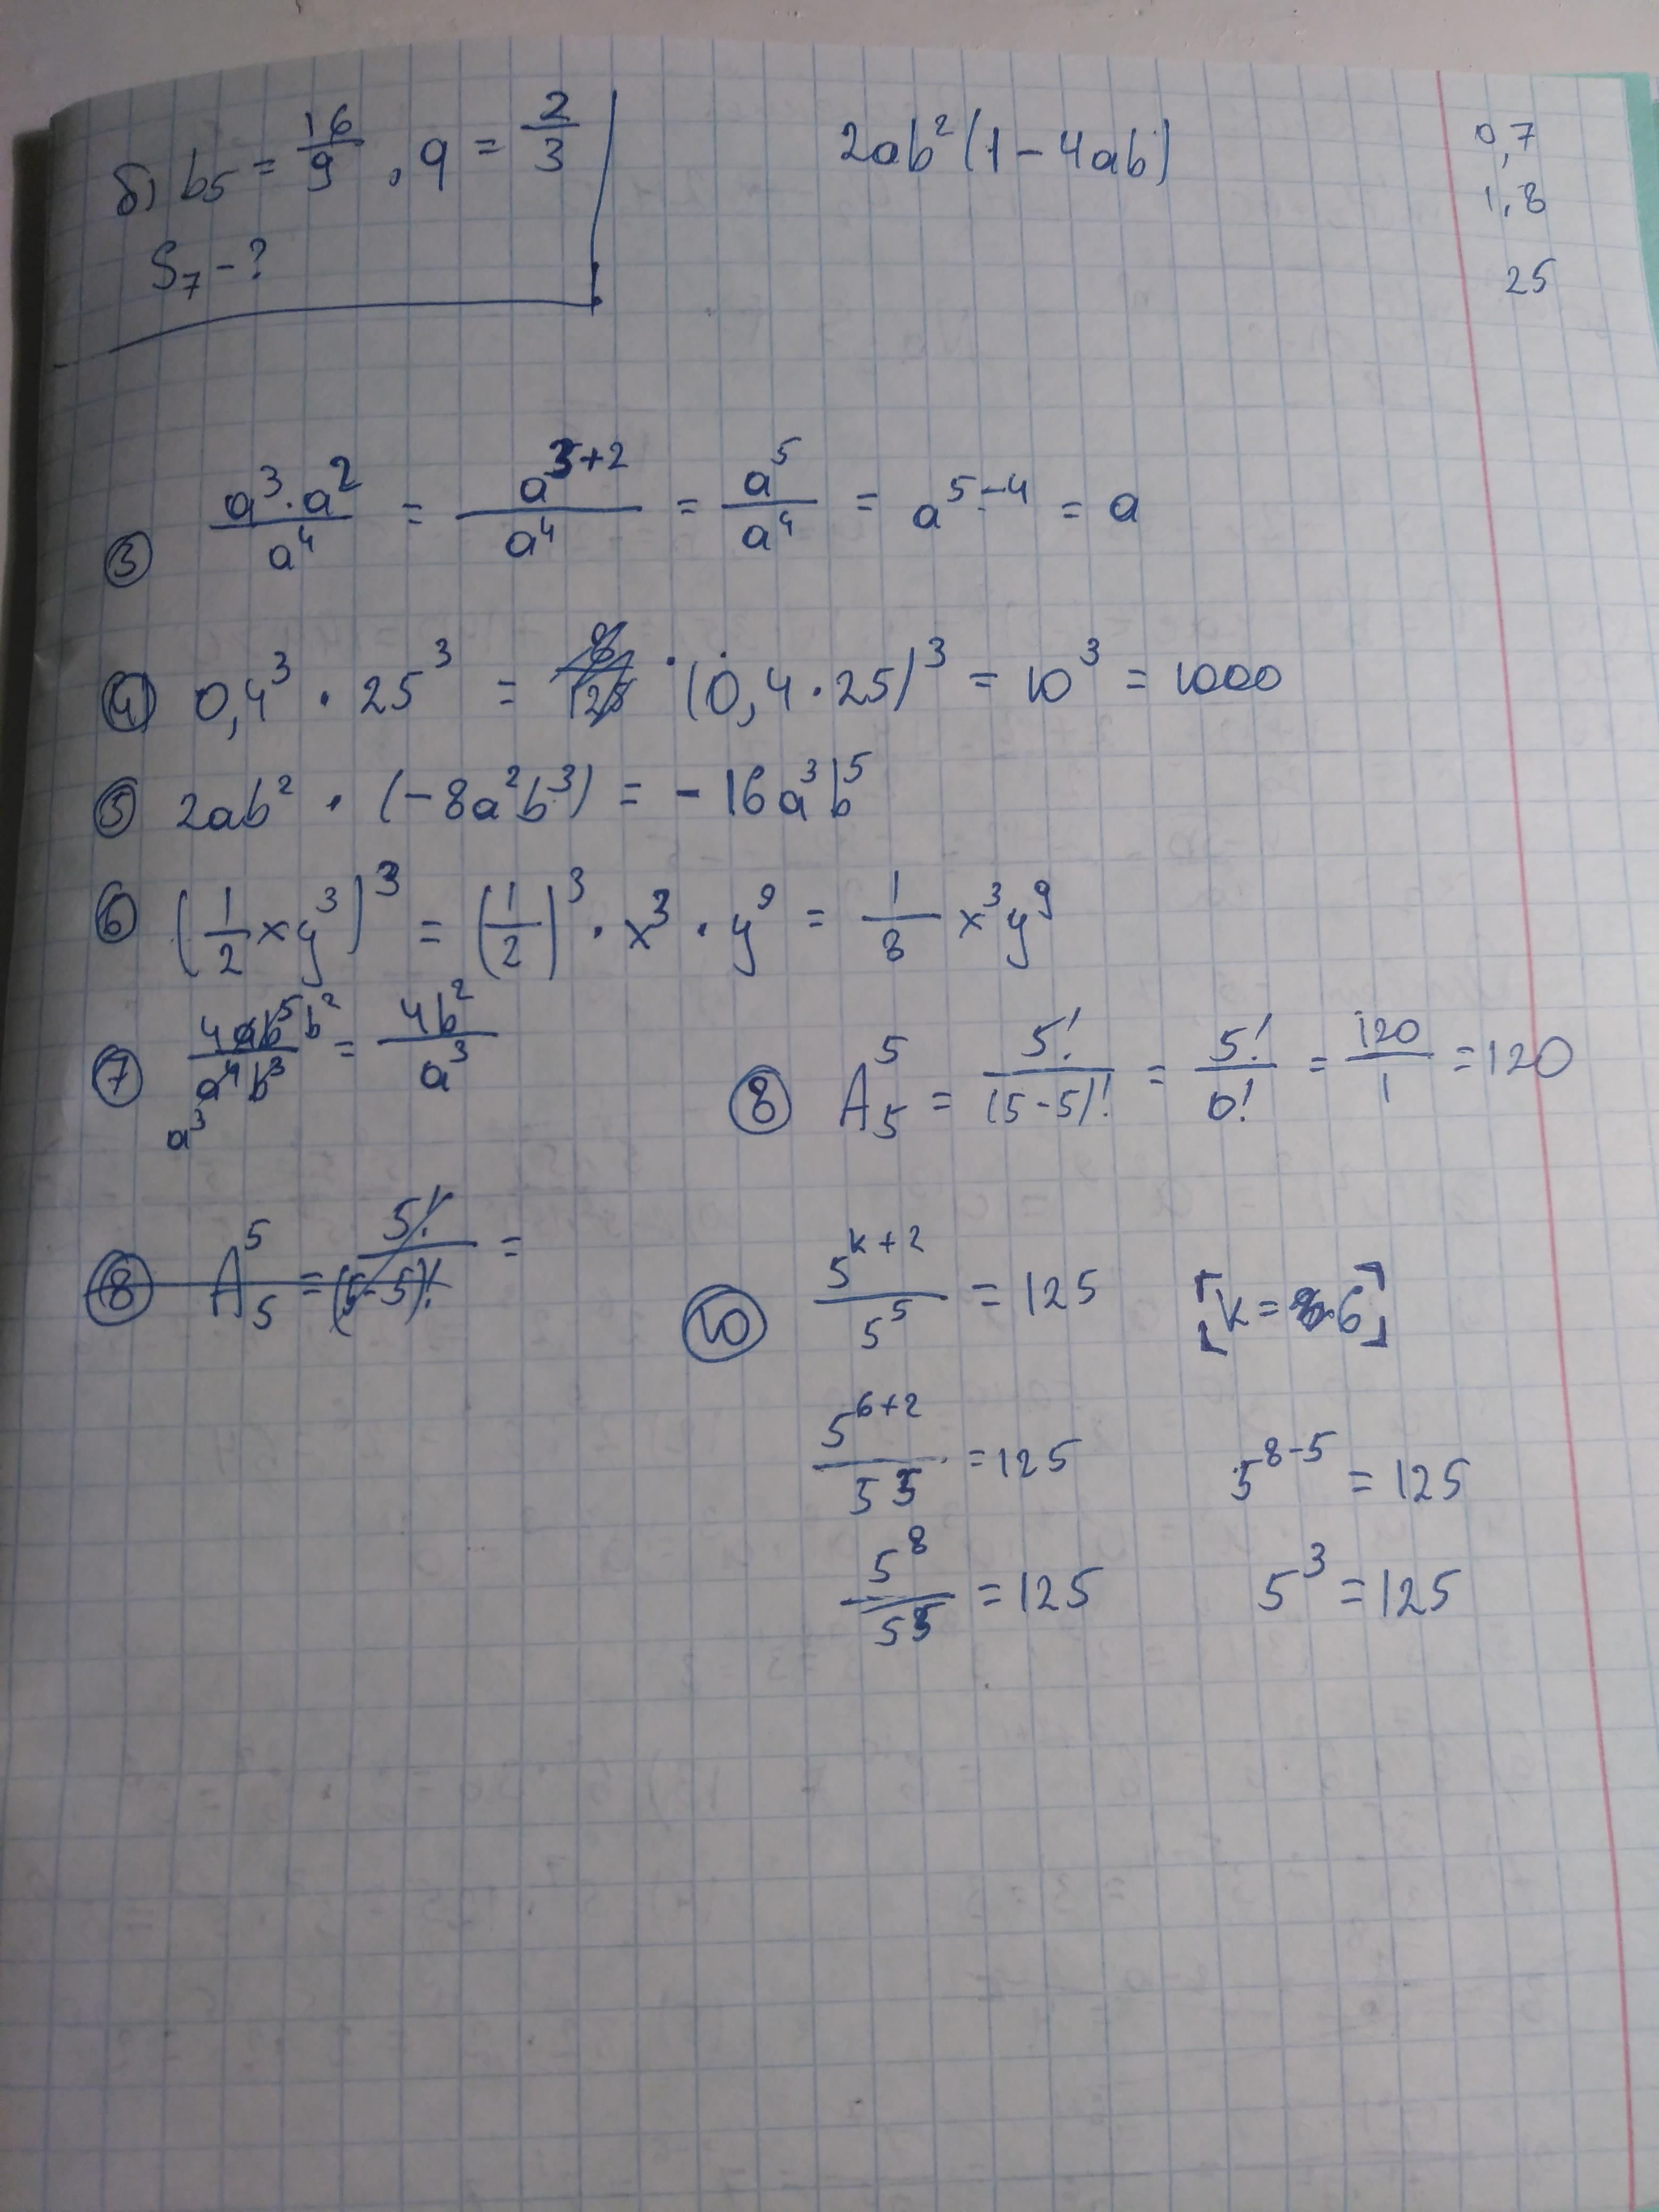 б) b₅ = 16/9, q = 2/3
S₇ - ?
2ab²(1 - 4ab)
0,7
1,8
25
③ a³·a²/a⁴ = a³⁺²/a⁴ = a⁵/a⁴ = a⁵⁻⁴ = a
④ 0,4³ · 25³ = (0,4·25)³ = 10³ = 1000
⑤ 2ab² · (-8a²b³) = -16a³b⁵
⑥ (1/2 xy³)³ = (1/2)³ · x³ · y⁹ = 1/8 x³y⁹
⑦ 4ab⁵ b²/a⁴b³ a³ = 4b²/a³
⑧ A₅⁵ = 5!/(5-5)! = 5!/0! = 120/1 = 120
⑧ A₅⁵ = 5!/(5-5)! =
⑩ 5ᵏ⁺²/5⁵ = 125 [k = 6]
5⁶⁺²/5⁵ = 125 5⁸⁻⁵ = 125
5⁸/5⁵ = 125 5³ = 125